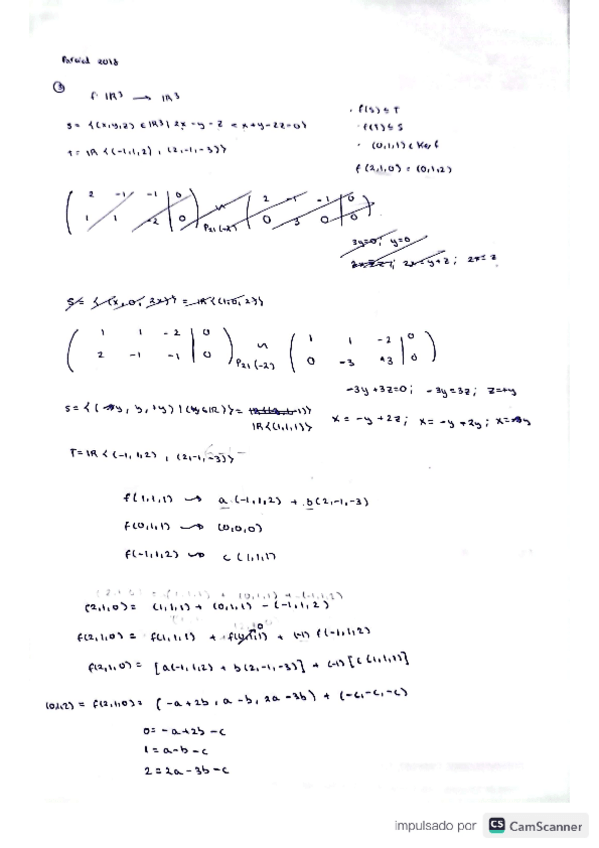 Parcial 2018
③
f: IR³ → IR³
S = {(x,y,z) ∈ IR³ | 2x - y - z = x+y-2z=0}
· f(S) ⊆ T
T = IR {(-1,1,2) , (2,-1,-3)}
· f(T) ⊆ S
· (0,1,1) ∈ Ker f
f(2,1,0) = (0,1,2)
( 2 -1 -1 | 0
1 1 -2 | 0 ) ~ P21(-2) ( 2 -1 -1 | 0
0 3 0 | 0 )
3y=0; y=0
2x=y+z; 2x=z
S = {(x, 0, 2x)} = IR{(1,0,2)}
( 1 1 -2 | 0
2 -1 -1 | 0 ) P21(-2) ~ ( 1 1 -2 | 0
0 -3 +3 | 0 )
-3y+3z=0; -3y=3z; z=+y
S = {( y, y, +y) | (y∈IR)} =
IR{(1,1,1)}
x = -y+2z; x = -y+2y; x=y
T = IR < (-1,1,2) , (2,-1,-3)>
f(1,1,1) → a·(-1,1,2) + b(2,-1,-3)
f(0,1,1) → (0,0,0)
f(-1,1,2) → c(1,1,1)
(2,1,0) = (1,1,1) + (0,1,1) - (-1,1,2)
f(2,1,0) = f(1,1,1) + f(0,1,1) 0 + (-1) f(-1,1,2)
f(2,1,0) = [a(-1,1,2) + b(2,-1,-3)] + (-1)[c(1,1,1)]
(0,1,2) = f(2,1,0) = (-a+2b, a-b, 2a-3b) + (-c,-c,-c)
0 = -a+2b-c
1 = a-b-c
2 = 2a-3b-c
impulsado por CS CamScanner